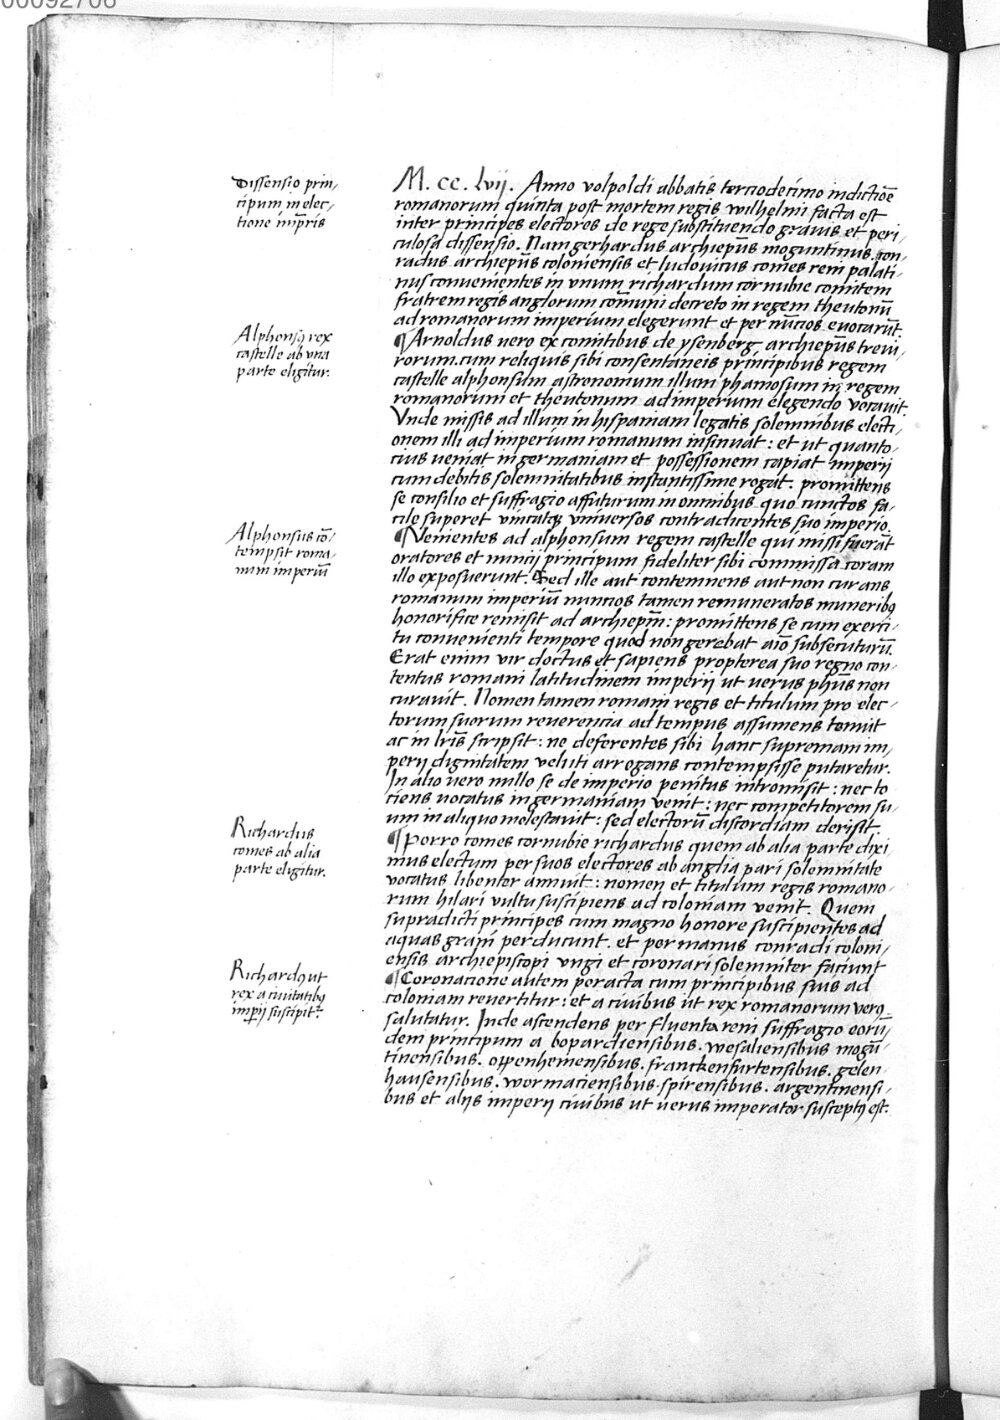 00092706
Dissensio prin-
cipum in elec-
tione imp̄ris
M. cc. lvij. Anno volpoldi abbatis terciodecimo indictiōe
romanorum quinta post mortem regis wilhelmi facta est
inter principes electores de rege substituendo grauis et peri-
culosa dissensio. Nam gerhardus archiep̄us moguntinus, con-
radus archiep̄us coloniensis et ludouicus comes reni palati-
nus conuenientes in vnum richardum cornubie comitem
fratrem regis anglorum com̄uni decreto in regem theutonū
ad romanorum imperium elegerunt et per nūcios euocarūt.
Alphonsꝯ rex
castelle ab vna
parte eligitur.
¶Arnoldus uero ex comitibus de ysenberg archiep̄us treui-
rorum cum reliquis sibi consentaneis principibus regem
castelle alphonsum astronomum illum phamosum in regem
romanorum et theutonum ad imperium elegendo vocauit.
Vnde missis ad illum in hispaniam legatis solemnibus electi-
onem illi ad imperium romanum insinuat: et ut quanto-
cius ueniat in germaniam et possessionem capiat imperij
cum debitis solemnitatibus instantissime rogat. promittens
se consilio et suffragio affuturum in omnibus quo cunctos fa-
cile superet vincatqꝫ vniuersos contradicentes suo imperio.
Alphonsus cō-
tempsit roma-
num imperiū
¶Venientes ad alphonsum regem castelle qui missi fuerāt
oratores et nuncij principum fideliter sibi commissa coram
illo exposuerunt. Sed ille aut contemnens aut non curans
romanum imperiū nuncios tamen remuneratos muneribꝯ
honorifice remisit ad archiep̄m: promittens se cum exerci-
tu conuenienti tempore quod non gerebat aīo subsecuturū.
Erat enim vir doctus et sapiens propterea suo regno con-
tentus romani latitudinem imperij ut uerus ph̄us non
curauit. Nomen tamen romani regis et titulum pro elec-
torum suorum reuerencia ad tempus assumens tenuit
ac in lr̄is scripsit: ne deferentes sibi hanc supremam im-
perij dignitatem veluti arrogans contempsisse putaretur.
In alio uero nullo se de imperio penitus intromisit: nec to-
ciens uocatus in germaniam venit: nec competitorem su-
um in aliquo molestauit: sed electorū discordiam derisit.
Richardus
comes ab alia
parte eligitur.
¶Porro comes cornubie richardus quem ab alia parte dixi-
mus electum per suos electores ab anglia pari solemnitate
vocatus libenter annuit: nomen et titulum regis romano-
rum hilari vultu suscipiens ad coloniam venit. Quem
supradicti principes cum magno honore suscipientes ad
aquas grani perducunt. et per manus conradi coloni-
ensis archiepiscopi vngi et coronari solemniter faciunt
Richardꝯ ut
rex a ciuitatibꝯ
imp̄ij suscipit᷑.
¶Coronacione autem peracta cum principibus suis ad
coloniam reuertitur: et a ciuibus ut rex romanorum verꝯ
salutatur. Inde ascendens per fluenta reni suffragio eorū-
dem principum a bopardiensibus. wesaliensibus mogū-
tinensibus. oppenhemensibus. franckenfurtensibus. gelen-
hausensibus. wormaciensibus spirensibus. argentinensi-
bus et alijs imperij ciuibus ut uerus imperator susceptꝯ est.